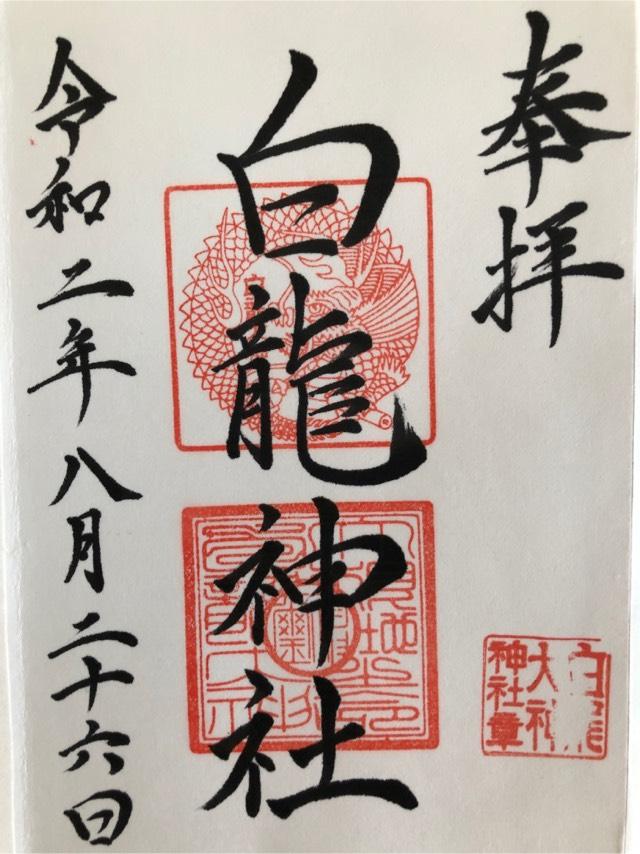 奉拝
白龍神社
令和二年八月二十六日
大神
神社章